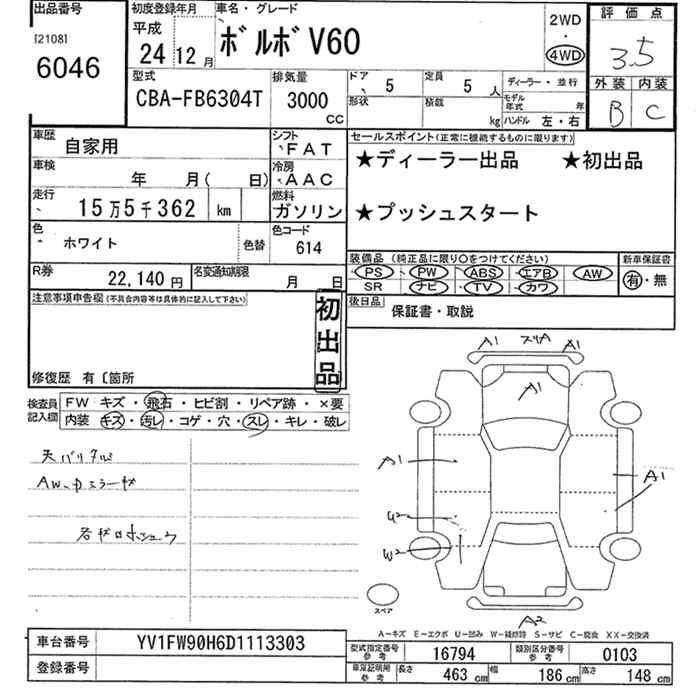 出品番号
[2108]
6046
初度登録年月
平成
24 12 月
車名・グレード
ボルボ V60
2WD
・
4WD
評価点
3.5
外装 内装
B C
型式
CBA-FB6304T
排気量
3000
CC
ドア 5
形状
定員 5 人
積載 kg
ディーラー・並行
モデル年式 年
ハンドル 左・右
車歴 自家用
シフト FAT
車検 年 月( 日)
冷房 AAC
走行 15万5千362 km
燃料 ガソリン
色 ホワイト
色替
色コード 614
R券 22,140 円
名変通知期限 月 日
セールスポイント(正常に機能するものに限ります)
★ディーラー出品 ★初出品
★プッシュスタート
装備品(純正品に限り○をつけてください)
PS PW ABS エアB AW
SR ナビ TV カワ
新車保証書
有・無
後日品 保証書・取説
注意事項申告欄(不具合内容等は具体的に記入して下さい)
初出品
修復歴 有〔箇所
検査員記入欄
FW キズ・飛石・ヒビ割・リペア跡・×要
内装 キズ・汚レ・コゲ・穴・スレ・キレ・破レ
A1 A1
A1
A1
A1
W2
A2
スペア
A-キズ E-エクボ U-凹み W-補修跡 S-サビ C-腐食 XX-交換済
車台番号 YV1FW90H6D1113303
登録番号
型式指定番号 参考 16794
類別区分番号 参考 0103
車庫証明用 参考 長さ 463 cm 幅 186 cm 高さ 148 cm